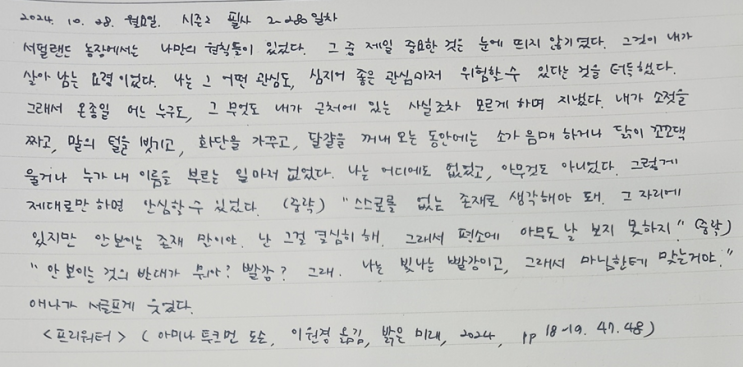 2024. 10. 28. 월요일. 시즌2 필사 2-280일차
서덜랜드 농장에서는 나만의 원칙들이 있었다. 그 중 제일 중요한 것은 눈에 띄지 않기였다. 그것이 내가
살아 남는 요령이었다. 나는 그 어떤 관심도, 심지어 좋은 관심마저 위험할 수 있다는 것을 터득했다.
그래서 온종일 어느 누구도, 그 무엇도 내가 근처에 있는 사실조차 모르게 하며 지냈다. 내가 소젖을
짜고, 말의 털을 빗기고, 화단을 가꾸고, 달걀을 꺼내 오는 동안에는 소가 음매 하거나 닭이 꼬꼬댁
울거나 누가 내 이름을 부르는 일마저 없었다. 나는 어디에도 없었고, 아무것도 아니었다. 그렇게
제대로만 하면 안심할 수 있었다. (중략) "스스로를 없는 존재로 생각해야 돼. 그 자리에
있지만 안 보이는 존재 말이야. 난 그걸 열심히 해. 그래서 평소에 아무도 날 보지 못하지." (중략)
"안 보이는 것의 반대가 뭐야? 빨강? 그래. 나는 빛나는 빨강이고, 그래서 마님한테 맞는거야."
애나가 서글프게 웃었다.
<프리워터> (아미나 루크먼 도슨, 이원경 옮김, 밝은 미래, 2024, pp 18-19. 47. 48)